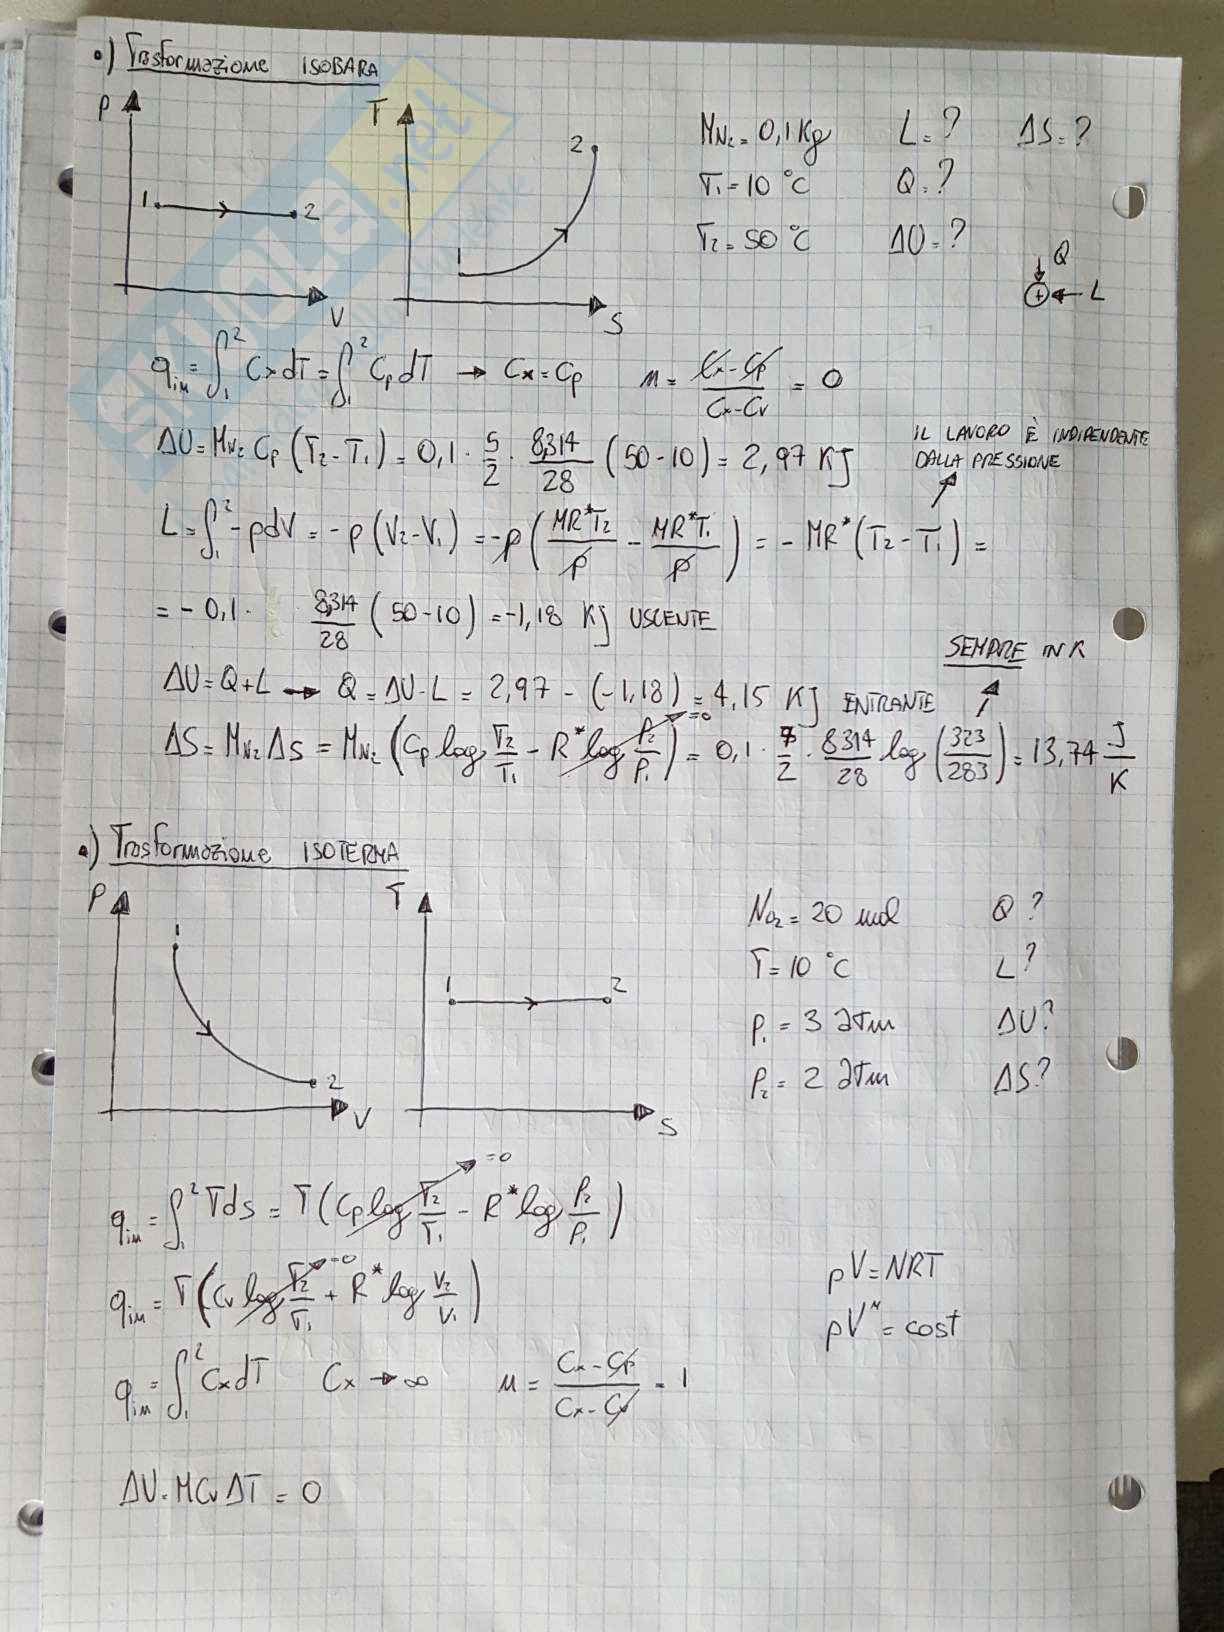 •) Trasformazione ISOBARA
P
1
2
V
T
1
2
S
M_N₂ = 0,1 Kg    L = ?    ΔS = ?
T₁ = 10 °C    Q = ?
T₂ = 50 °C    ΔU = ?
Q
+
L
q_in = ∫₁² Cx dT = ∫₁² Cp dT → Cx = Cp    n = (Cx - Cp)/(Cx - Cv) = 0
ΔU = M_N₂ Cp (T₂ - T₁) = 0,1 · 5/2 · 8,314/28 (50 - 10) = 2,97 KJ
IL LAVORO È INDIPENDENTE
DALLA PRESSIONE
L = ∫₁² -pdV = -p (V₂ - V₁) = -p (MR*T₂/p - MR*T₁/p) = - MR* (T₂ - T₁) =
= - 0,1 · 8,314/28 (50 - 10) = -1,18 KJ USCENTE
SEMPRE IN K
ΔU = Q + L → Q = ΔU - L = 2,97 - (-1,18) = 4,15 KJ ENTRANTE
ΔS = M_N₂ Δs = M_N₂ (Cp log T₂/T₁ - R* log P₂/P₁) = 0,1 · 7/2 · 8314/28 log (323/283) = 13,74 J/K
=0
•) Trasformazione ISOTERMA
P
1
2
V
T
1
2
S
N_O₂ = 20 mol    Q ?
T = 10 °C    L ?
P₁ = 3 atm    ΔU ?
P₂ = 2 atm    ΔS ?
q_in = ∫₁² Tds = T (Cp log T₂/T₁ - R* log P₂/P₁)
=0
q_in = T (Cv log T₂/T₁ + R* log V₂/V₁)
=0
pV = NRT
pVⁿ = cost
q_in = ∫₁² Cx dT    Cx → ∞    n = (Cx - Cp)/(Cx - Cv) = 1
ΔU = M Cv ΔT = 0
SKUOLA.net